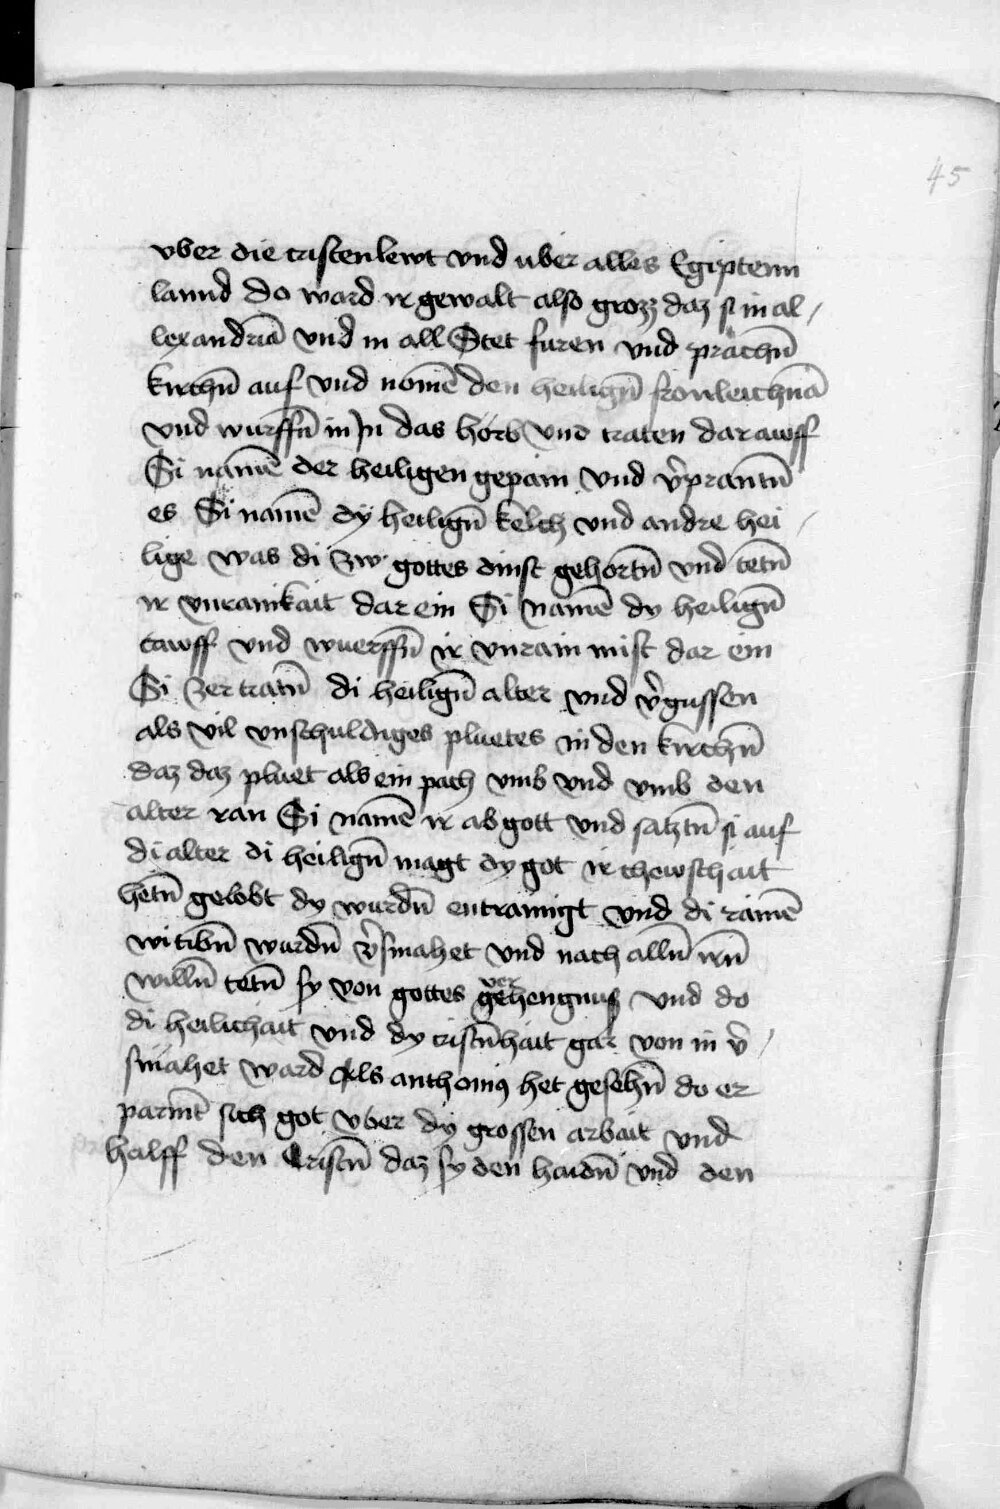 45
vber die cristenlewt vnd uber alles Egiptenn
lannd do ward ir gewalt also grozz daz si in al
lexandriā vnd in all Stet furen vnd prachn̄
kirchn̄ auf vnd nomē den heilign̄ fronleichnā
vnd wurffn̄ in Jn das horb vnd traten darawff
Si namē der heiligen gepain vnd v̄prantn̄
es Si namē dy heilign̄ kelch vnd andre hei
lige was di zw gottes dinst gehortn̄ vnd tetn̄
ir vnrainkait dar ein Si namē dy heilign̄
tawff vnd wuerffn̄ ir vnrain mist dar ein
Si zertratn̄ di heilign̄ alter vnd v̄gussen
als vil vnschuldiges pluetes in den kirchn̄
daz daz pluet als ein pach vmb vnd vmb den
alter ran Si namē ir abgott vnd satztn̄ si auf
di alter di heilign̄ magt dy got ir chewschait
hetn̄ gelobt dy wurdn̄ entrainigt vnd di rainē
witibn̄ wurdn̄ v̄smahet vnd nach alln̄ irn̄
willn̄ tetn̄ sy von gottes verhengnuß vnd do
di heilichait vnd dy cristn̄hait gar von in v̄
smahet ward Als anthonius het gesehn̄ do er
parmt̄ sich got vber dy grossen arbait vnd
halff den Cristn̄ daz sy den haidn̄ vnd den